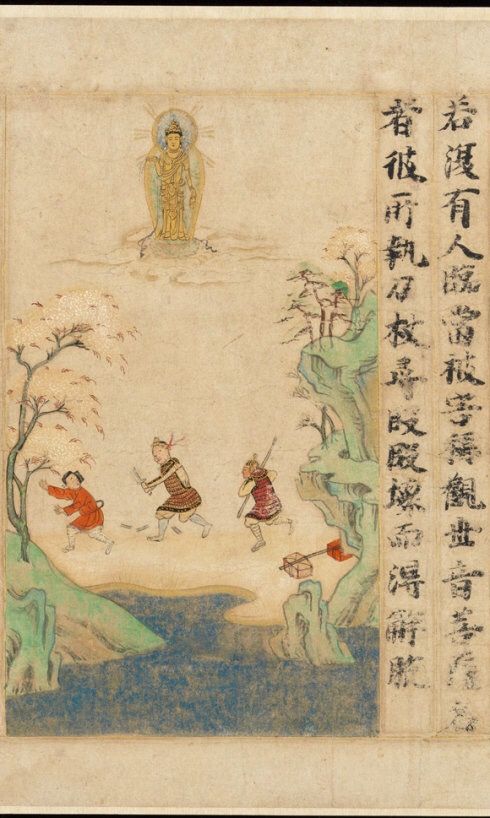 若復有人臨當被害稱觀世音菩薩名
者彼所執刀杖尋段段壞而得解脫